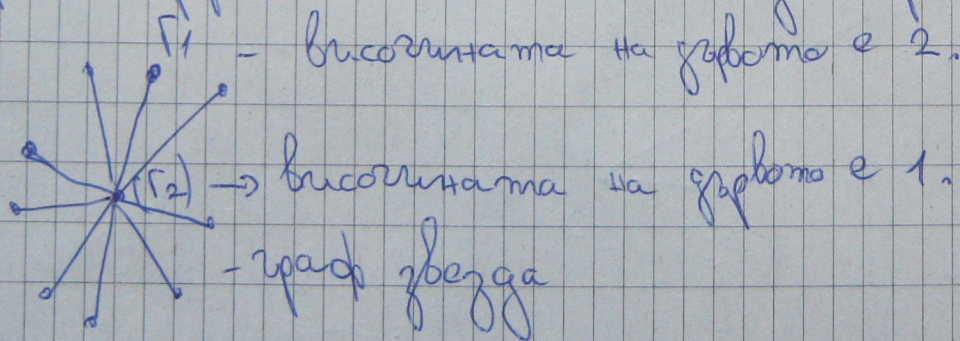 r1 - височината на дървото е 2.
(r2) → височината на дървото е 1.
- граф звезда